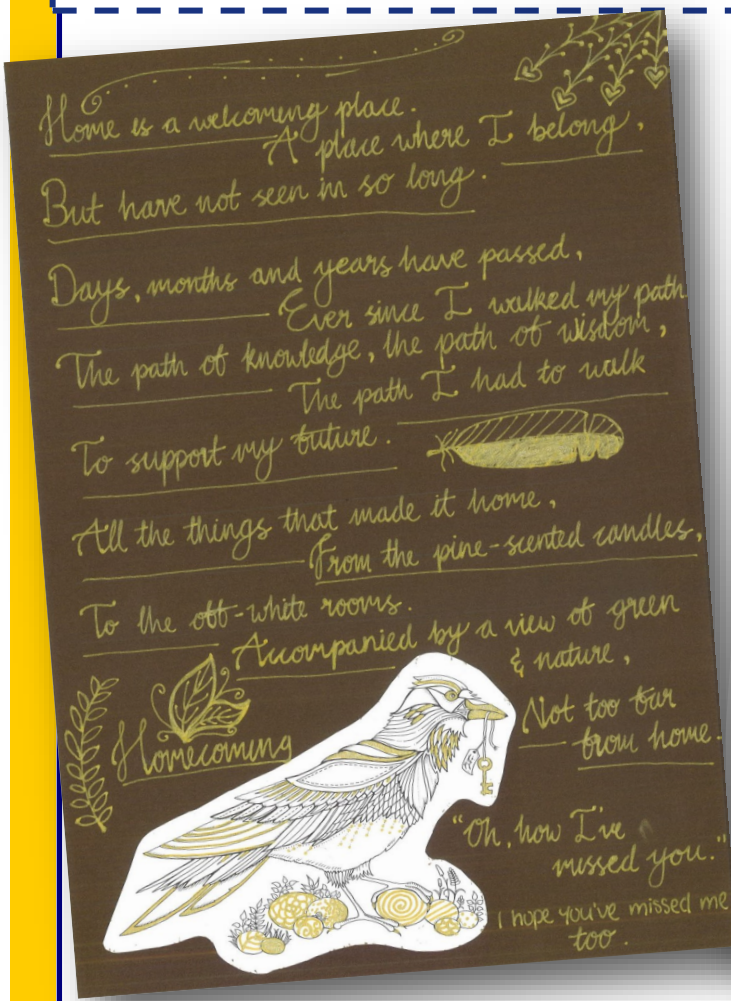 Home is a welcoming place.
A place where I belong,
But have not seen in so long.
Days, months and years have passed,
Ever since I walked my path
The path of knowledge, the path of wisdom,
The path I had to walk
To support my future.
All the things that made it home,
From the pine-scented candles,
To the off-white rooms.
Accompanied by a view of green
& nature,
Not too far
from home.
Homecoming
"Oh, how I've
missed you."
I hope you've missed me
too.